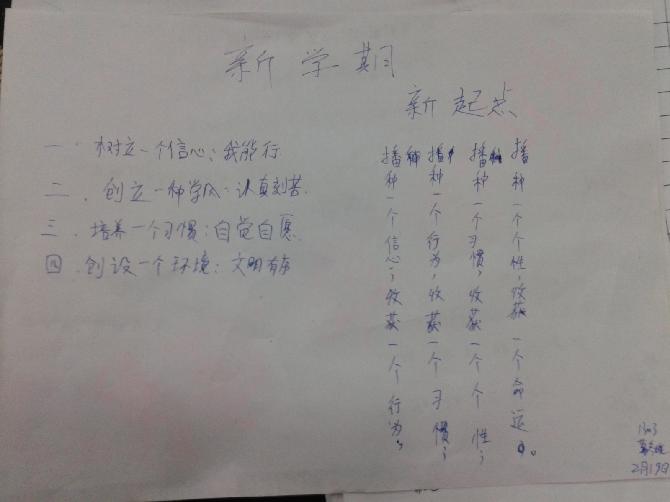 新学期
新起点
一、树立一个信心：我能行
二、创立一种学风：认真刻苦
三、培养一个习惯：自觉自愿
四、创设一个环境：文明有序
播种一个信心，收获一个行为，
播种一个行为，收获一个习惯，
播种一个习惯，收获一个个性，
播种一个个性，收获一个命运。
1303
2月19日